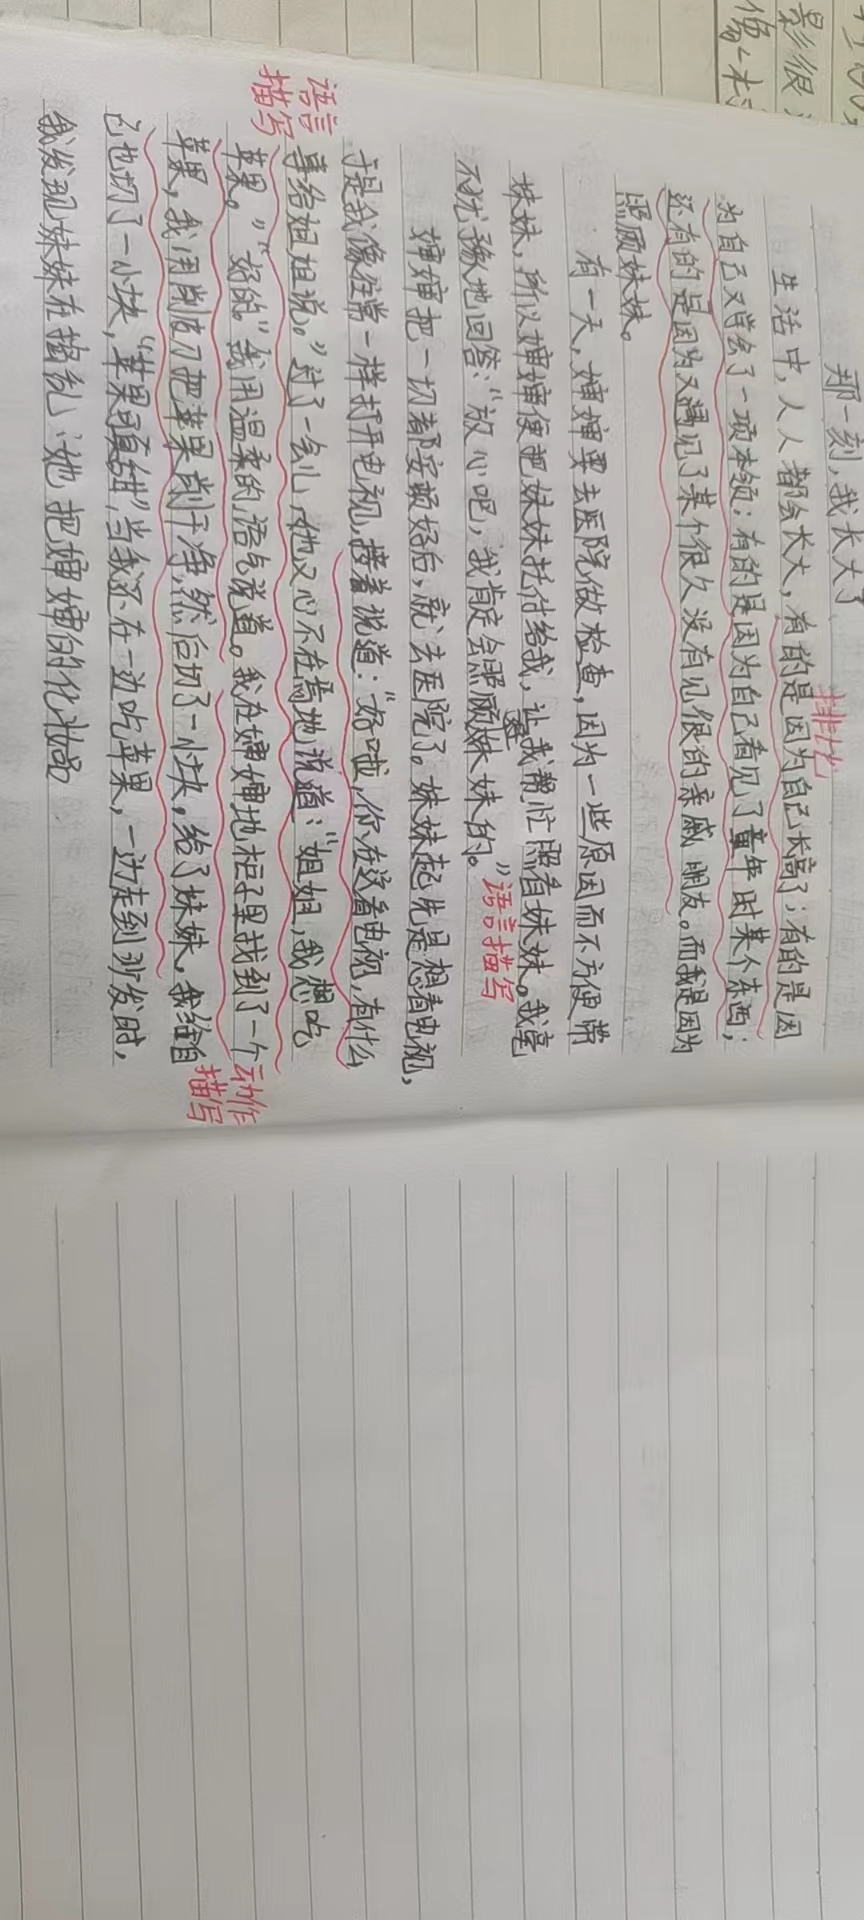 那一刻,我长大了
生活中,人人都会长大,有的是因为自己长高了;有的是因
排比
为自己又学会了一项本领;有的是因为自己看见了童年时某个东西;
还有的是因为又遇见了某个很久没有见很的亲戚朋友。而我是因为
照顾妹妹。
有一天,婶婶要去医院做检查,因为一些原因而不方便带
妹妹,所以婶婶便把妹妹托付给我,让我帮忙照看妹妹。我毫
不犹豫地回答:“放心吧,我肯定会照顾妹妹的。”语言描写
婶婶把一切都安顿好后,就去医院了。妹妹起先是想看电视,
于是我像往常一样打开电视,接着说道:“好啦,你在这看电视,有什么
语言描写
事给姐姐说。”过了一会儿,她又心不在焉地说道:“姐姐,我想吃
苹果。”“好的”我用温柔的语气说道。我在婶婶地柜子里找到了一个
动作描写
苹果,我用削皮刀把苹果削干净,然后切了一小块,给了妹妹。我给自
己也切了一小块,“苹果真甜”当我还在一边吃苹果,一边走到沙发时,
我发现妹妹在捣乱:她把婶婶的化妆品
影很